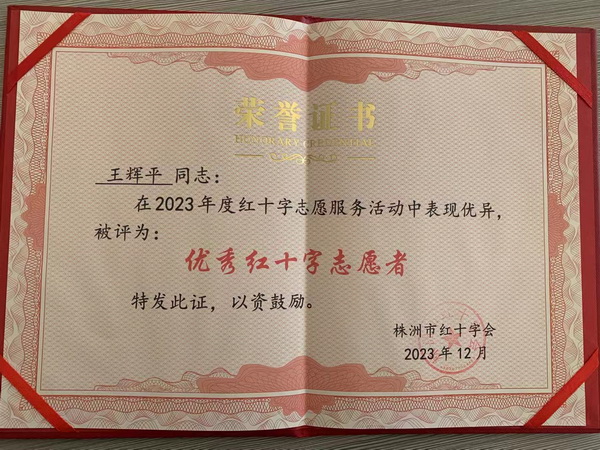 荣誉证书
HONORARY CREDENTIAL
王辉平 同志：
在2023年度红十字志愿服务活动中表现优异，
被评为：
优秀红十字志愿者
特发此证，以资鼓励。
株洲市红十字会
2023年12月